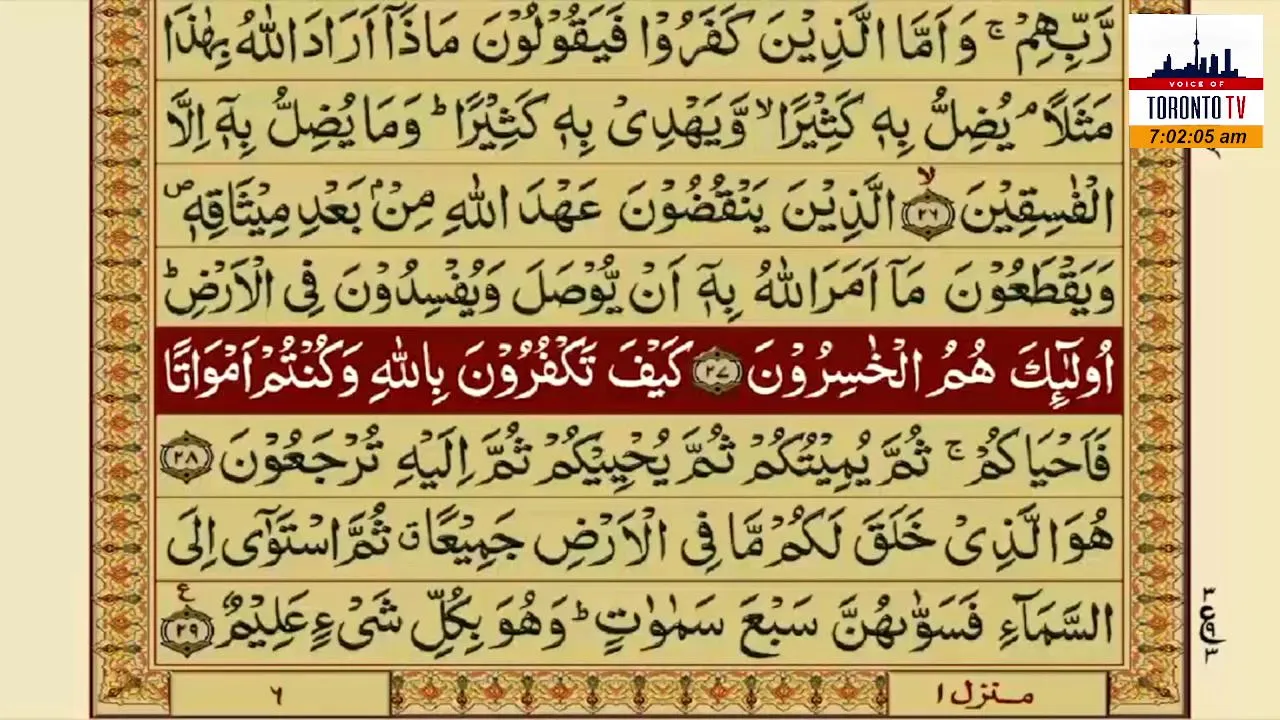 رَّبِّهِمْ ۚ وَاَمَّا الَّذِيْنَ كَفَرُوْا فَيَقُوْلُوْنَ مَاذَاۤ اَرَادَ اللّٰهُ بِهٰذَا
مَثَلًا ۘ يُضِلُّ بِهٖ كَثِيْرًا ۙ وَّيَهْدِىْ بِهٖ كَثِيْرًا ؕ وَمَا يُضِلُّ بِهٖۤ اِلَّا
الْفٰسِقِيْنَ ۙ‏﴿۲۶﴾ الَّذِيْنَ يَنْقُضُوْنَ عَهْدَ اللّٰهِ مِنْۢ بَعْدِ مِيْثَاقِهٖ ۪
وَيَقْطَعُوْنَ مَاۤ اَمَرَ اللّٰهُ بِهٖۤ اَنْ يُّوْصَلَ وَيُفْسِدُوْنَ فِى الْاَرْضِ ؕ
اُولٰٓٮِٕكَ هُمُ الْخٰسِرُوْنَ ﴿۲۷﴾ كَيْفَ تَكْفُرُوْنَ بِاللّٰهِ وَكُنْتُمْ اَمْوَاتًا
فَاَحْيَاكُمْ ۚ ثُمَّ يُمِيْتُكُمْ ثُمَّ يُحْيِيْكُمْ ثُمَّ اِلَيْهِ تُرْجَعُوْنَ ﴿۲۸﴾
هُوَ الَّذِىْ خَلَقَ لَكُمْ مَّا فِى الْاَرْضِ جَمِيْعًا ۗ ثُمَّ اسْتَوٰۤى اِلَى
السَّمَآءِ فَسَوّٰٮهُنَّ سَبْعَ سَمٰوٰتٍ ؕ وَهُوَ بِكُلِّ شَىْءٍ عَلِيْمٌ ﴿۲۹﴾ ع
منزل ۱
۶
VOICE OF
TORONTO TV
7:02:05 am